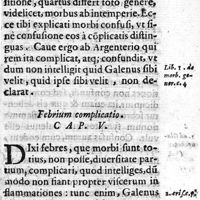 ſitione, quartus differt toto genere,
videlicet, morbus ab intemperie. Ecce
tibi explicati morbi confuſi, vt ſi-
ne confuſione eos à cõplicatis diſtin-
guas. Caue ergo ab Argenterio qui
rem ita complicat, atq; confundit, vt
dum non intelligit quid Galenus ſibi
velit, quid ipſe ſibi velit, non de-
clarat.
Lib. 2. de
morb. ge-
ner. c. 4
Febrium complicatio.
CAP. V.
DIxi febres, quæ morbi ſunt to-
tius, non poſſe, diuerſitate par-
tium, complicari, quod intelliges, dũ
modo non fiant propter viſcerum in
flammationes: tunc enim, Galenus